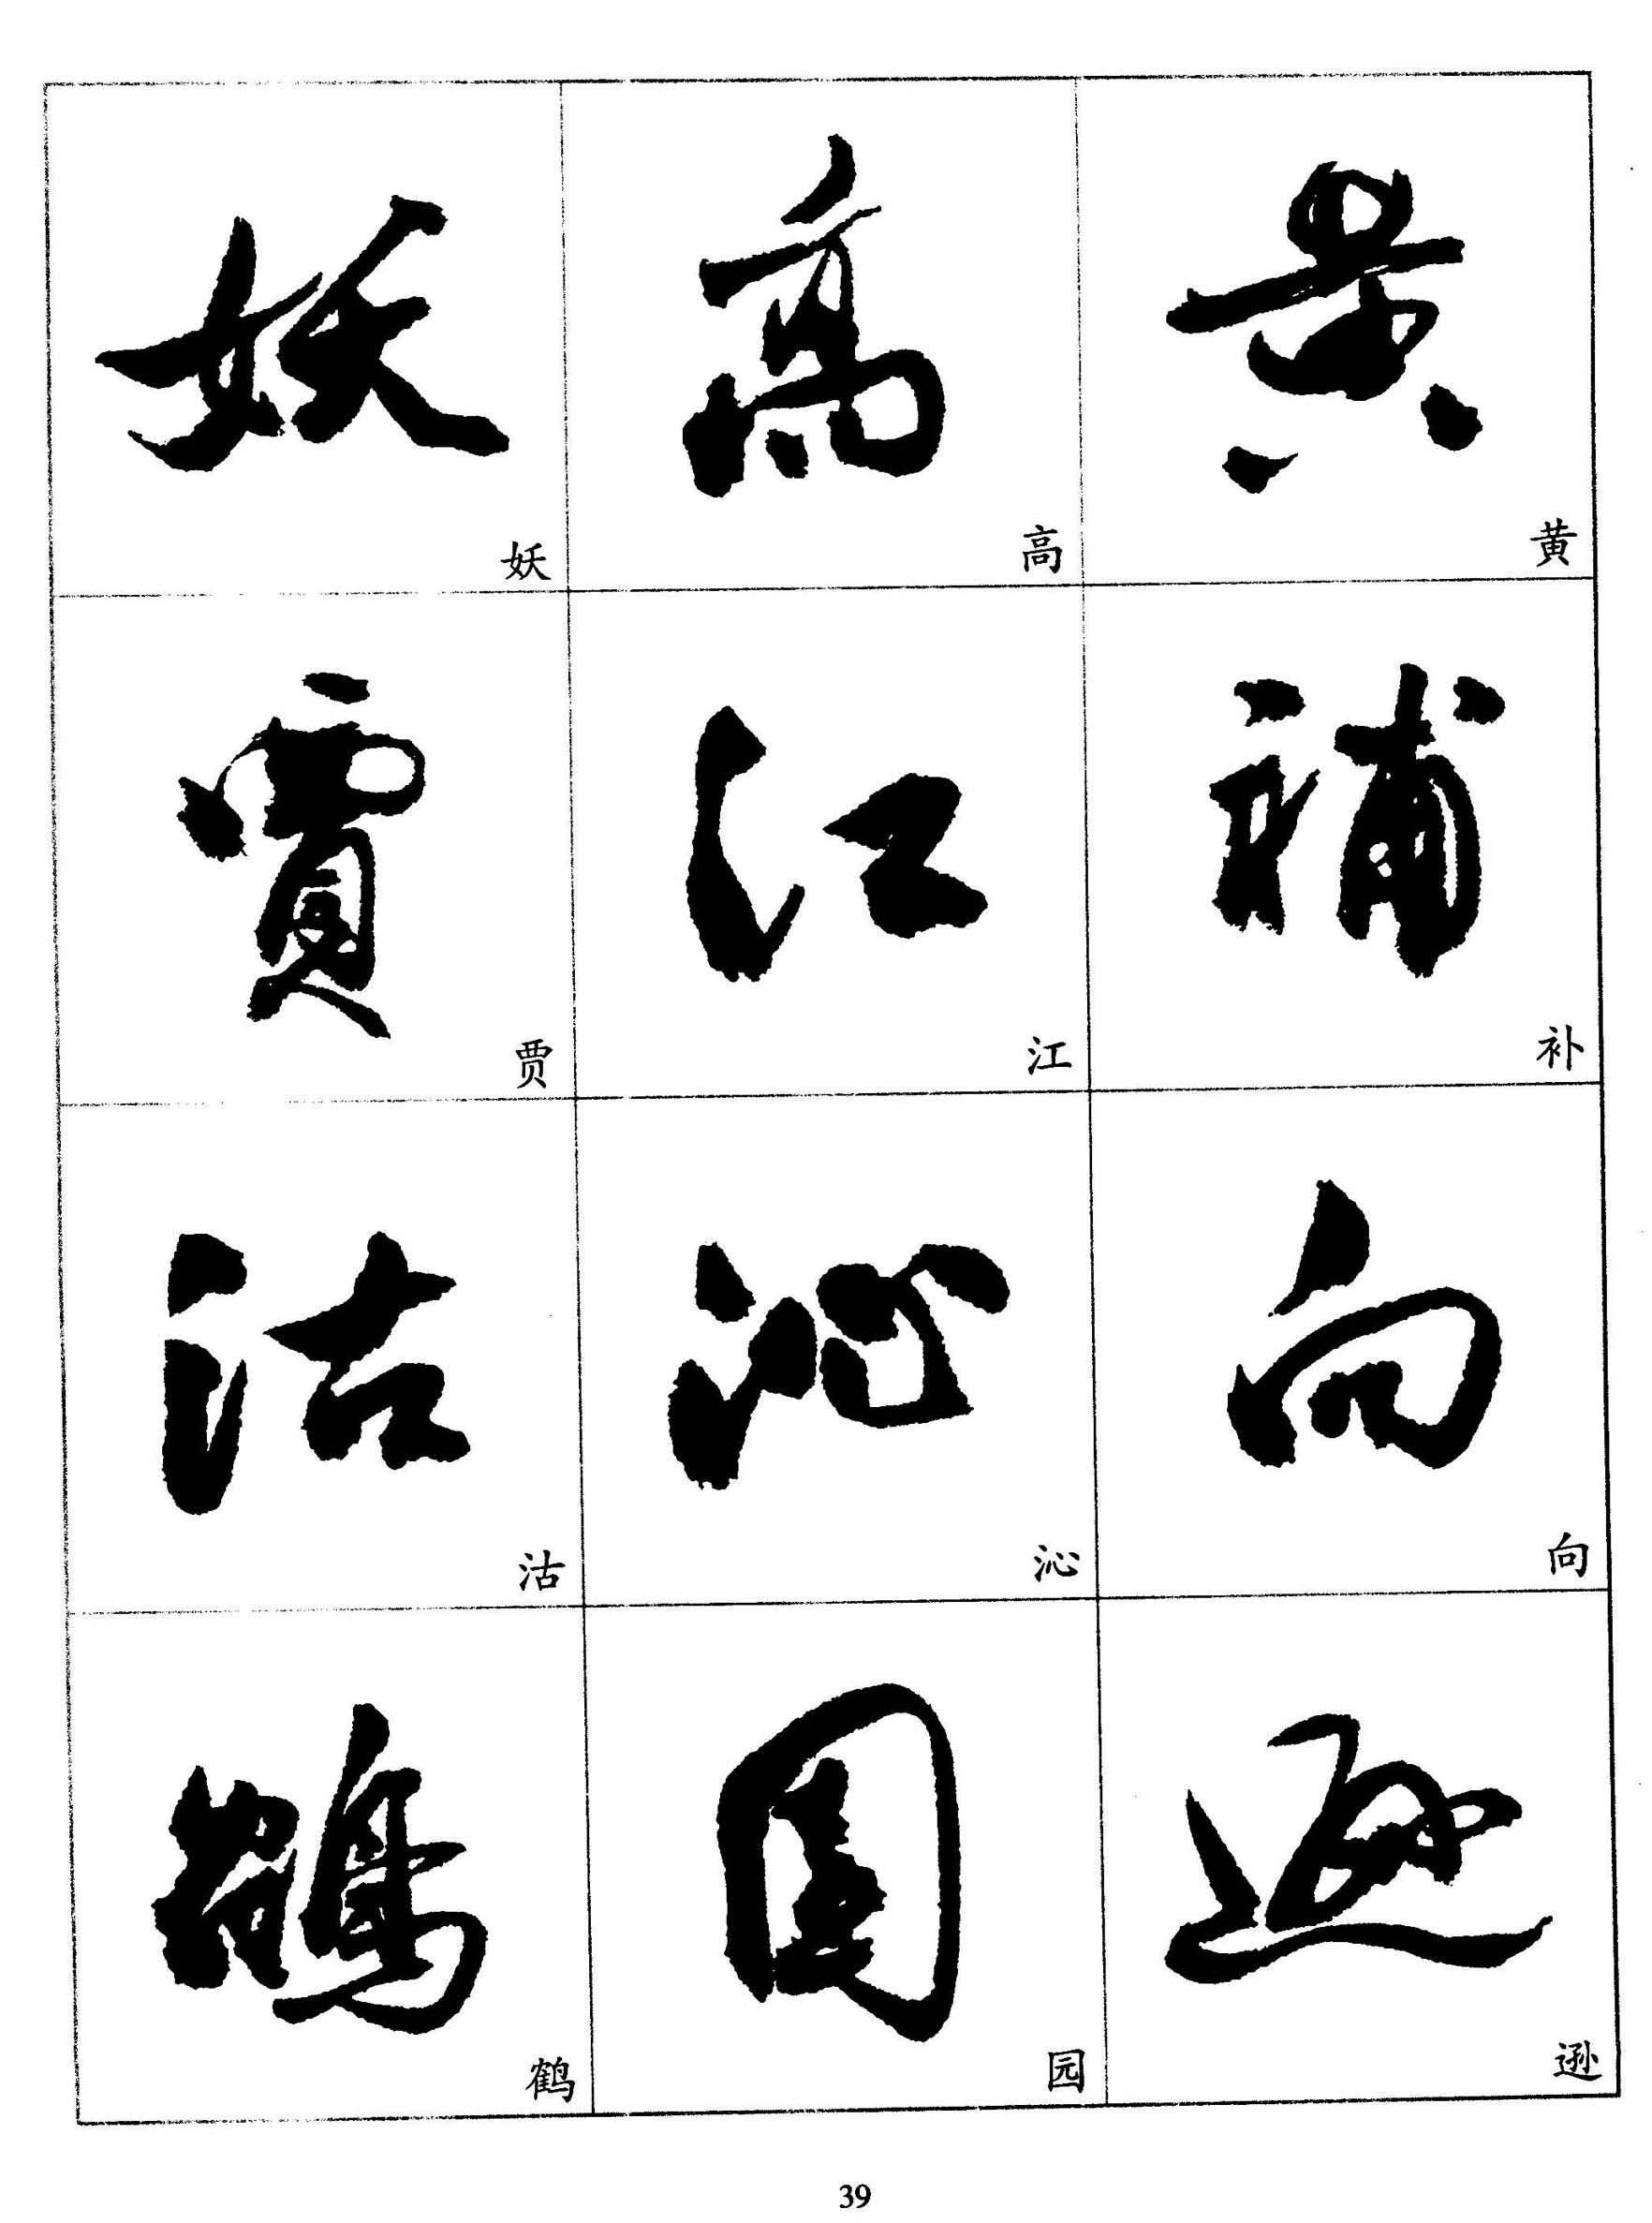 妖 高 黄
妖 高 黄
賈 江 補
贾 江 补
沽 沁 向
沽 沁 向
鶴 園 遜
鹤 园 逊
39